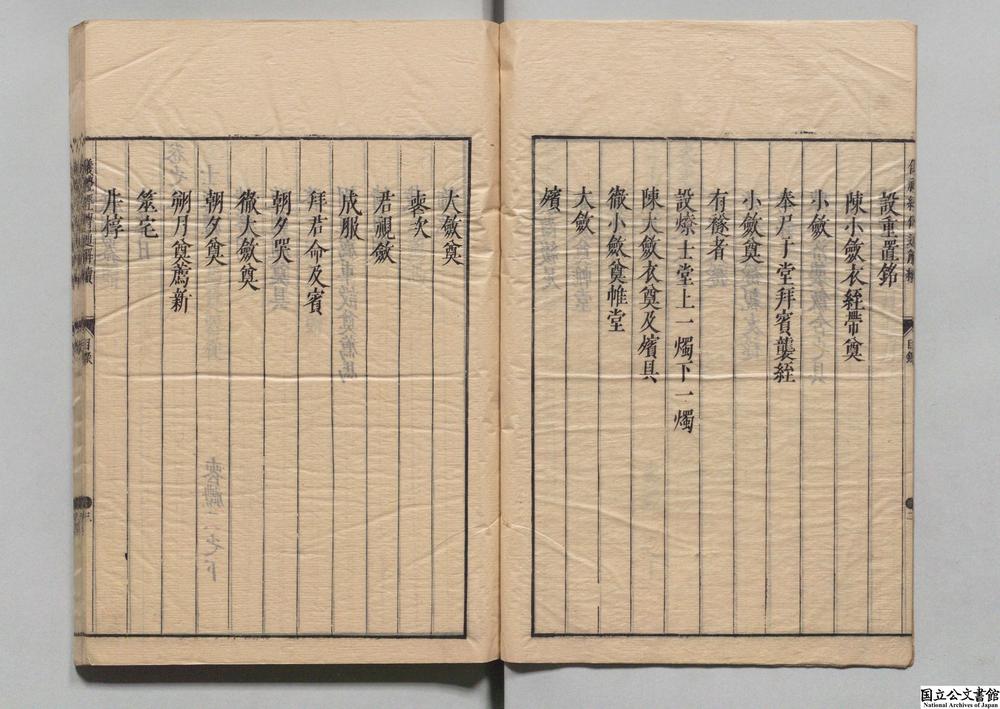 設重置銘
陳小斂衣絰帶奠
小斂
奉尸于堂拜賓襲絰
小斂奠
有襚者
設燎士堂上一燭下一燭
陳大斂衣奠及殯具
徹小斂奠帷堂
大斂
殯
大斂奠
喪次
君視斂
成服
拜君命及賓
朝夕哭
徹大斂奠
朝夕奠
朔月奠薦新
筮宅
井椁
目錄
三
国立公文書館
National Archives of Japan